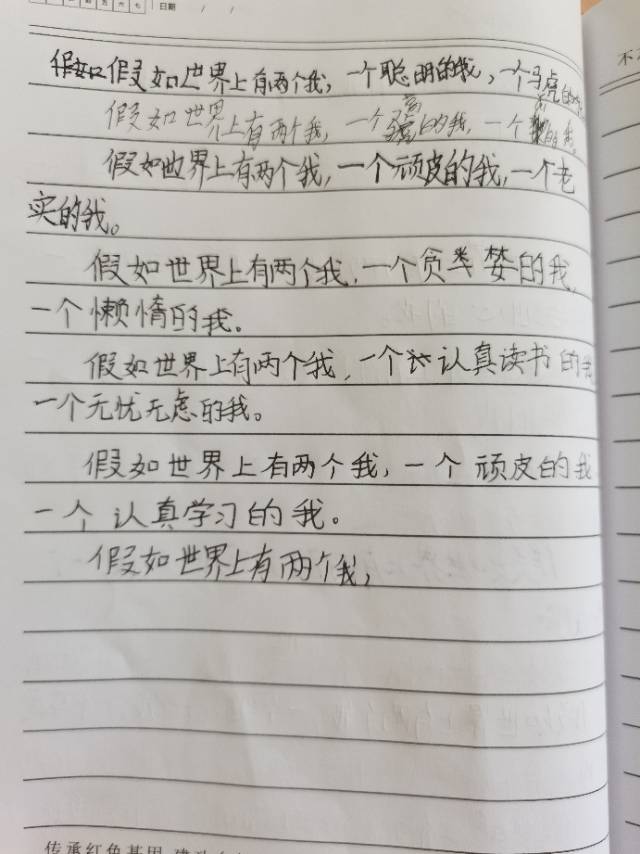 日期
假如假如世界上有两个我，一个聪明的我，一个马虎的我。
假如世界上有两个我，一个高的我，一个的我。
假如世界上有两个我，一个顽皮的我，一个老
实的我。
假如世界上有两个我，一个负类婪的我，
一个懒惰的我。
假如世界上有两个我，一个认真读书的我
一个无忧无虑的我。
假如世界上有两个我，一个顽皮的我
一个认真学习的我。
假如世界上有两个我，
传承红色基因